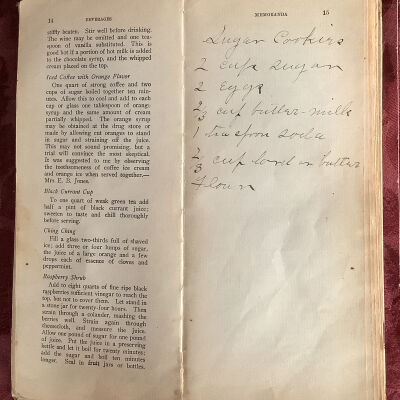 14 BEVERAGES
stiffly beaten. Stir well before drinking.
The wine may be omitted and one tea-
spoon of vanilla substituted. This is
good but if a portion of hot milk is added
to the chocolate syrup, and the whipped
cream placed on the top.
Iced Coffee with Orange Flavor
One quart of strong coffee and two
cups of sugar boiled together ten min-
utes. Allow this to cool and add to each
cup or glass one tablespoon of orange
syrup and the same amount of cream
partially whipped. The orange syrup
may be obtained at the drug store or
made by allowing cut oranges to stand
in sugar and straining off the juice.
This may not sound promising, but a
trial will convince the most skeptical.
It was suggested to me by observing
the toothsomeness of coffee ice cream
and orange ice when served together.—
Mrs. E. B. Jones.
Black Currant Cup
To one quart of weak green tea add
half a pint of black currant juice;
sweeten to taste and chill thoroughly
before serving.
Ching Ching
Fill a glass two-thirds full of shaved
ice; add three or four lumps of sugar,
the juice of a large orange and a few
drops each of essence of cloves and
peppermint.
Raspberry Shrub
Add to eight quarts of fine ripe black
raspberries sufficient vinegar to reach the
top, but not to cover them. Let stand in
a stone jar for twenty-four hours. Then
strain through a colander, mashing the
berries well. Strain again through
cheesecloth, and measure the juice.
Allow one pound of sugar for one pound
of juice. Put the juice in a preserving
kettle and let it boil for twenty minutes;
add the sugar and boil ten minutes
longer. Seal in fruit jars or bottles.
MEMORANDA 15
Sugar Cookies
2 cups sugar
2 eggs
2/3 cup butter-milk
1 teaspoon soda
2/3 cup lard or butter
Flour